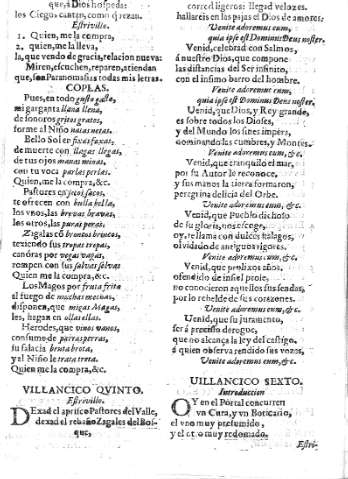 a Dios hospeda:
los Ciegos cantar, como q̃ rezan.
Estrivillo.
1. Quien, me la compra,
2. quien, me la lleva,
la, que vendo de gracia, relacion nueva:
Miren, escuchen, reparen, atiendan
que, son Paranomasias todas mis letras.
COPLAS.
Pues, en todo gusto gasto,
mi garganta llana llena,
de sonoros gritos gratos,
forme al Niño nacas netas.
Bello Sol er fixas faxas,
de muerte con llagas llegas,
de tus ojos manas minas,
con tu voca parlas perlas.
Quien, me la compra, &c.
Pastores en jocos sacos,
te ofrecen con bulla bella,
los vnos, las brevas bravas,
los otros, las puras peras.
Zigalas cõ brunetos brocatos,
texiendo sus tropas trepas,
canóras por vegas vagas,
rompen con sus salvas selvas
Quien me la compra, &c.
Los Magos por fruta frita
al fuego de muchas mechas,
disponen, que migas Magas,
les, hagan en ollas ellas.
Herodes, que vinos vanos,
consumo de parras perras,
su falacia bruta brota,
y al Niño le trata treta.
Quien me la compra, &c.
VILLANCICO QVINTO.
Estrivillo.
DExad el aprisco Pastores del Valle,
dexad el rebaño Zagales del Bosque,
corred ligeros: llegad velozes.
hallareis en las pajas el Dios de amores:
Venite adoremus eum,
quia ipse est Dominus Deus noster.
Venid, celebrad con Salmos,
á nuestro Dios, que compone
las distancias del Ser infinito,
con el infimo barro del hombre.
Venite adoremus eum,
quia ipse est Dominus Deus noster.
Venid, que Dios, y Rey grande,
es sobre todos los Dioses,
y del Mundo los fines impera,
dominando las cumbres, y Montes.
Venite adoremus eum, &c.
Venid, que tranquilo el mar,
por su Autor le reconoce,
y sus manos la tierra formaron,
peregrina delicia del Orbe.
Venite adoremus eum, &c.
Venid, que Pueblo dichoso
de su gloria, nos escoge,
oy, te llama con dulces halagos,
olvidado de antiguos rigores.
Venite adoremus eum, &c.
Venid, que prolixos años,
ofendido de infiel proie,
no conocieron aquellos sus sendas,
por lo rebelde de sus corazones.
Venite adoremus eum, &c.
Venid, que su juramento,
será preciso derogue,
que no alcança la ley del castigo,
á quien observa rendido sus vozes,
Venite adoremus eum, &c.
VILLANCICO SEXTO.
Introduccion
OY en el Portal concurren
vn Cura, y vn Boticario,
el vno muy presumido,
y el otro muy redomado.
Estri-